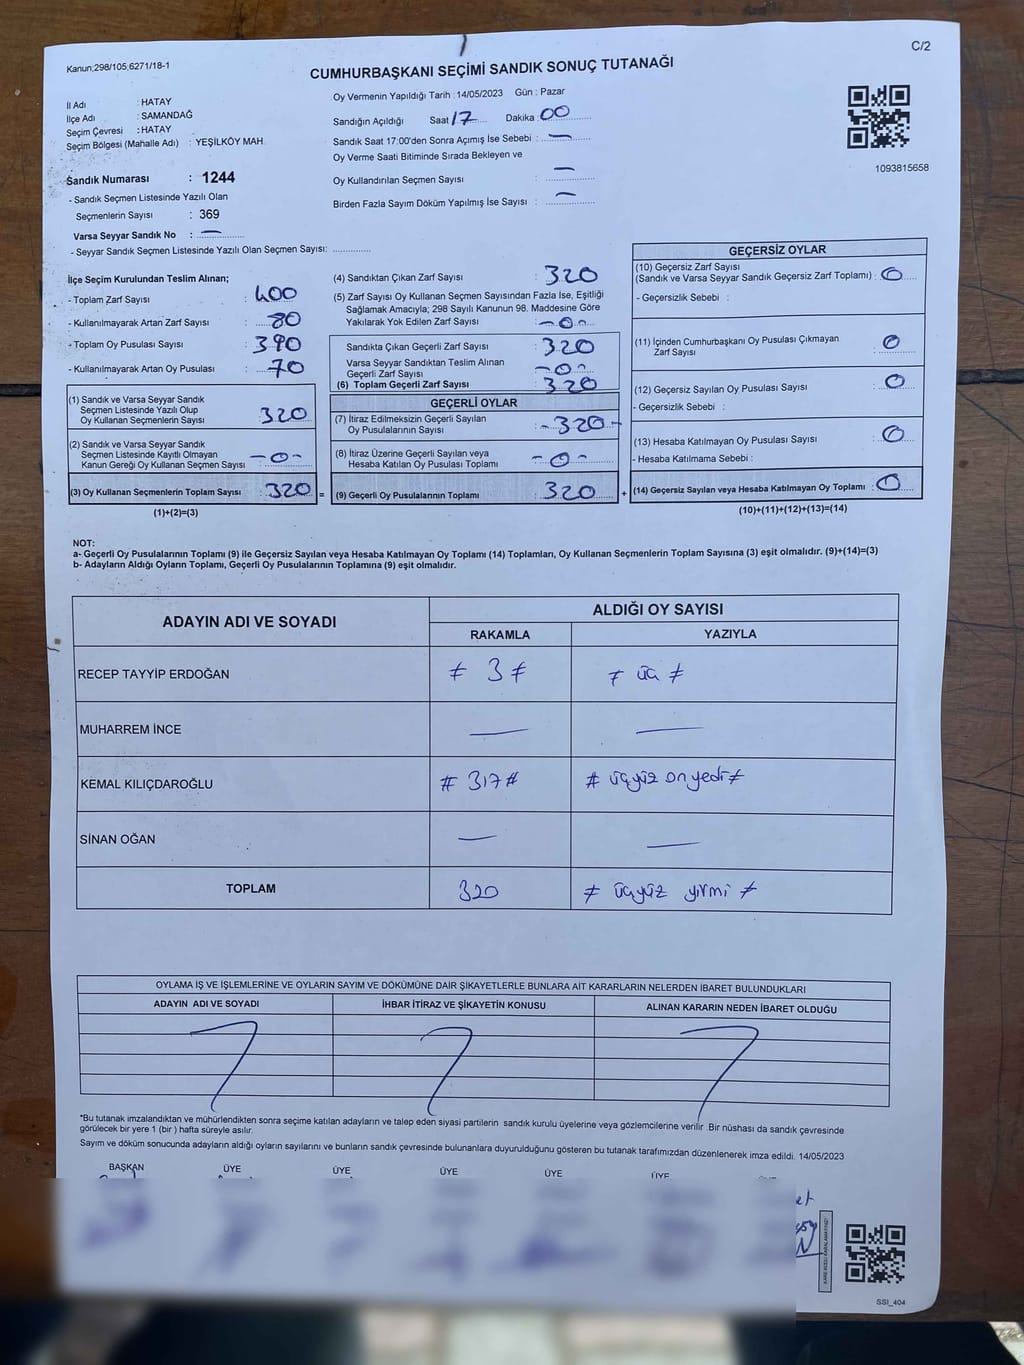 C/2
Kanun,298/105,6271/18-1
CUMHURBAŞKANI SEÇİMİ SANDIK SONUÇ TUTANAĞI
İl Adı : HATAY
İlçe Adı : SAMANDAĞ
Seçim Çevresi : HATAY
Seçim Bölgesi (Mahalle Adı) : YEŞİLKÖY MAH
Sandık Numarası : 1244
- Sandık Seçmen Listesinde Yazılı Olan
Seçmenlerin Sayısı : 369
Varsa Seyyar Sandık No : —
- Seyyar Sandık Seçmen Listesinde Yazılı Olan Seçmen Sayısı: ............
Oy Vermenin Yapıldığı Tarih :14/05/2023 Gün : Pazar
Sandığın Açıldığı Saat 17 Dakika 00
Sandık Saat 17:00'den Sonra Açımış İse Sebebi : —
Oy Verme Saati Bitiminde Sırada Bekleyen ve
Oy Kullandırılan Seçmen Sayısı —
Birden Fazla Sayım Döküm Yapılmış İse Sayısı : —
1093815658
İlçe Seçim Kurulundan Teslim Alınan;
- Toplam Zarf Sayısı : 400
- Kullanılmayarak Artan Zarf Sayısı : 80
- Toplam Oy Pusulası Sayısı : 390
- Kullanılmayarak Artan Oy Pusulası : 70
(1) Sandık ve Varsa Seyyar Sandık
Seçmen Listesinde Yazılı Olup
Oy Kullanan Seçmenlerin Sayısı : 320
(2) Sandık ve Varsa Seyyar Sandık
Seçmen Listesinde Kayıtlı Olmayan
Kanun Gereği Oy Kullanan Seçmen Sayısı -0-
(3) Oy Kullanan Seçmenlerin Toplam Sayısı : 320 =
(1)+(2)=(3)
(4) Sandıktan Çıkan Zarf Sayısı : 320
(5) Zarf Sayısı Oy Kullanan Seçmen Sayısından Fazla İse, Eşitliği
Sağlamak Amacıyla; 298 Sayılı Kanunun 98. Maddesine Göre
Yakılarak Yok Edilen Zarf Sayısı : -0-
Sandıkta Çıkan Geçerli Zarf Sayısı : 320
Varsa Seyyar Sandıktan Teslim Alınan
Geçerli Zarf Sayısı : -0-
(6) Toplam Geçerli Zarf Sayısı : 320
GEÇERLİ OYLAR
(7) İtiraz Edilmeksizin Geçerli Sayılan
Oy Pusulalarının Sayısı : -320-
(8) İtiraz Üzerine Geçerli Sayılan veya
Hesaba Katılan Oy Pusulası Toplamı -0-
(9) Geçerli Oy Pusulalarının Toplamı 320 +
GEÇERSİZ OYLAR
(10) Geçersiz Zarf Sayısı
(Sandık ve Varsa Seyyar Sandık Geçersiz Zarf Toplamı) : 0
- Geçersizlik Sebebi :
(11) İçinden Cumhurbaşkanı Oy Pusulası Çıkmayan
Zarf Sayısı 0
(12) Geçersiz Sayılan Oy Pusulası Sayısı 0
- Geçersizlik Sebebi :
(13) Hesaba Katılmayan Oy Pusulası Sayısı 0
- Hesaba Katılmama Sebebi :
(14) Geçersiz Sayılan veya Hesaba Katılmayan Oy Toplamı : 0
(10)+(11)+(12)+(13)=(14)
NOT:
a- Geçerli Oy Pusulalarının Toplamı (9) ile Geçersiz Sayılan veya Hesaba Katılmayan Oy Toplamı (14) Toplamları, Oy Kullanan Seçmenlerin Toplam Sayısına (3) eşit olmalıdır. (9)+(14)=(3)
b- Adayların Aldığı Oyların Toplamı, Geçerli Oy Pusulalarının Toplamına (9) eşit olmalıdır.
ADAYIN ADI VE SOYADI ALDIĞI OY SAYISI
RAKAMLA YAZIYLA
RECEP TAYYİP ERDOĞAN ≠ 3 ≠ ≠ üç ≠
MUHARREM İNCE — —
KEMAL KILIÇDAROĞLU # 317 # # üçyüz onyedi ≠
SİNAN OĞAN — —
TOPLAM 320 ≠ üçyüz yirmi ≠
OYLAMA İŞ VE İŞLEMLERİNE VE OYLARIN SAYIM VE DÖKÜMÜNE DAİR ŞİKAYETLERLE BUNLARA AİT KARARLARIN NELERDEN İBARET BULUNDUKLARI
ADAYIN ADI VE SOYADI İHBAR İTİRAZ VE ŞİKAYETİN KONUSU ALINAN KARARIN NEDEN İBARET OLDUĞU
*Bu tutanak imzalandıktan ve mühürlendikten sonra seçime katılan adayların ve talep eden siyasi partilerin sandık kurulu üyelerine veya gözlemcilerine verilir .Bir nüshası da sandık çevresinde
görülecek bir yere 1 (bir ) hafta süreyle asılır.
Sayım ve döküm sonucunda adayların aldığı oyların sayılarını ve bunların sandık çevresinde bulunanlara duyurulduğunu gösteren bu tutanak tarafımızdan düzenlenerek imza edildi. 14/05/2023
BAŞKAN ÜYE ÜYE ÜYE ÜYE ÜYE
SSI_404